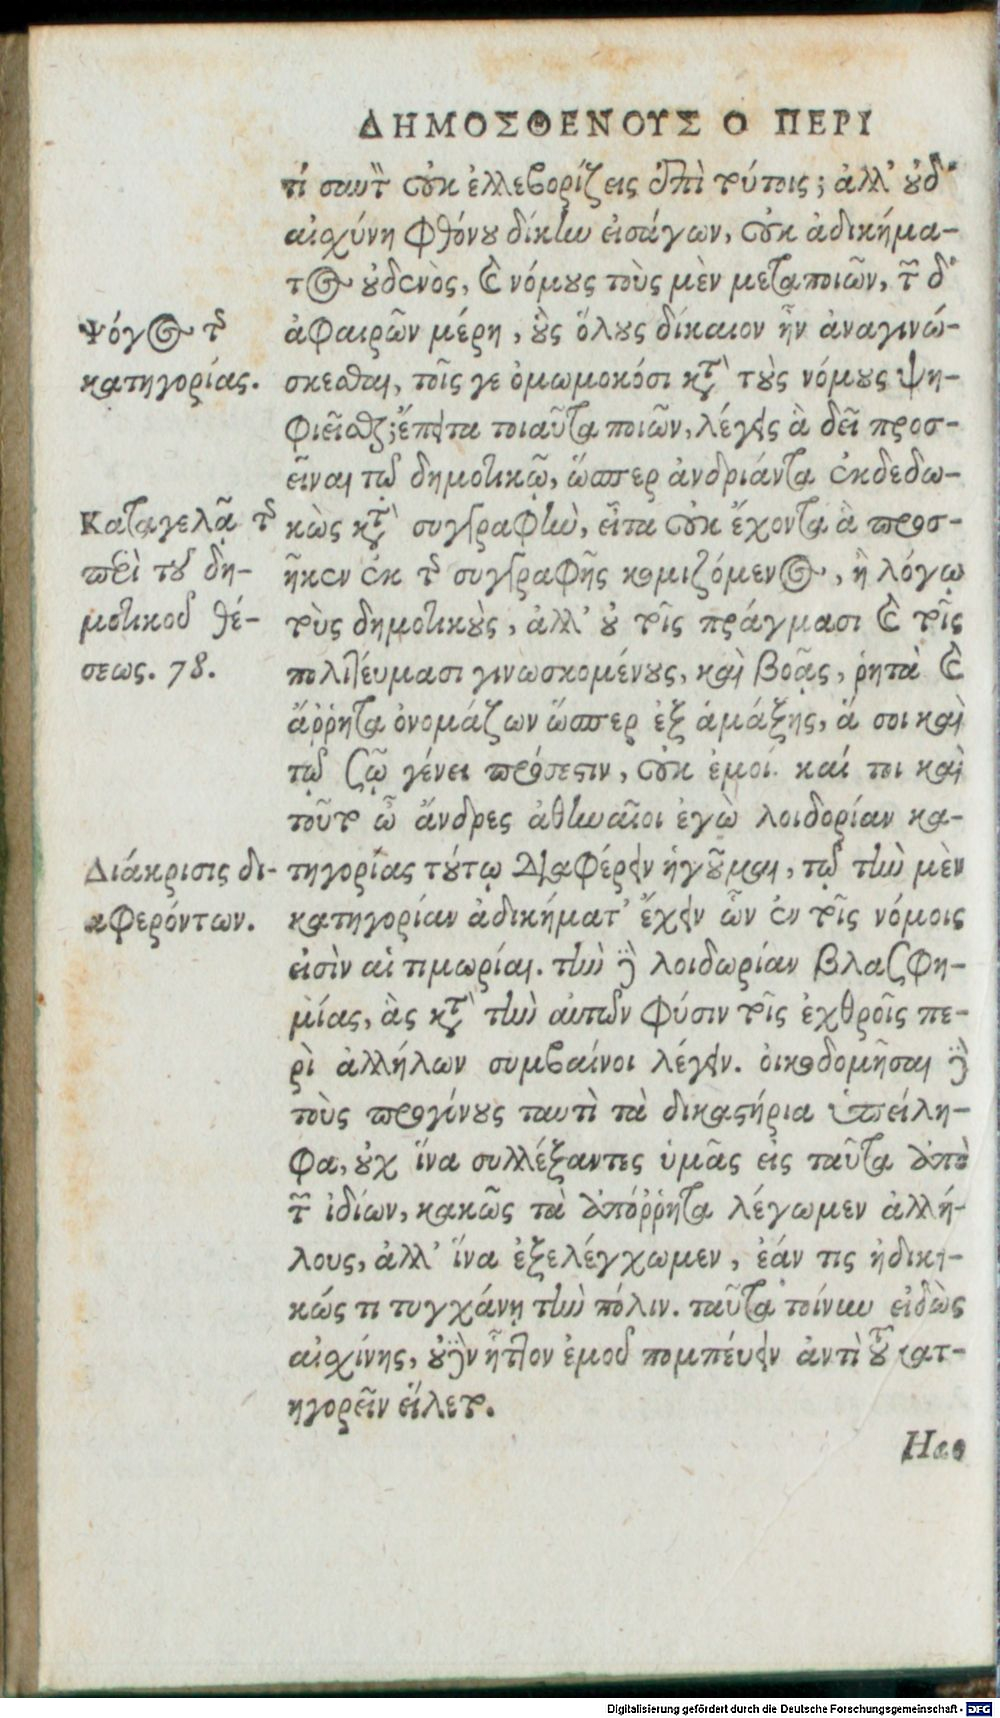 ΔΗΜΟΣΘΕΝΟΥΣ Ο ΠΕΡΙ
τί σαυτὸν οὐκ ἐλλεβορίζεις ἐπὶ τούτοις; ἀλλ' οὐδ'
αἰσχύνῃ φθόνου δίκην εἰσάγων, οὐκ ἀδικήμα-
τος οὐδενὸς, καὶ νόμους τοὺς μὲν μεταποιῶν, τῶν δ'
ἀφαιρῶν μέρη, οὓς ὅλους δίκαιον ἦν ἀναγινώ-
σκεσθαι, τοῖς γε ὀμωμοκόσι κατὰ τοὺς νόμους ψη-
φιεῖσθαι; ἔπειτα τοιαῦτα ποιῶν, λέγεις ἃ δεῖ προσ-
εῖναι τῷ δημοτικῷ, ὥσπερ ἀνδριάντα ἐκδεδω-
κὼς κατὰ συγγραφὴν, εἶτα οὐκ ἔχοντα ἃ προσ-
ῆκεν ἐκ τῆς συγγραφῆς κομιζόμενος, ἢ λόγῳ
τοὺς δημοτικοὺς, ἀλλ' οὐ τοῖς πράγμασι καὶ τοῖς
πολιτεύμασι γινωσκομένους, καὶ βοᾷς, ῥητὰ καὶ
ἄῤῥητα ὀνομάζων ὥσπερ ἐξ ἁμάξης, ἅ σοι καὶ
τῷ σῷ γένει πρόσεστιν, οὐκ ἐμοί. καί τοι καὶ
τοῦτο ὦ ἄνδρες ἀθηναῖοι ἐγὼ λοιδορίαν κα-
τηγορίας τούτῳ διαφέρειν ἡγοῦμαι, τῷ τὴν μὲν
κατηγορίαν ἀδικήματ' ἔχειν ὧν ἐν τοῖς νόμοις
εἰσὶν αἱ τιμωρίαι. τὴν δὲ λοιδωρίαν βλασφη-
μίας, ἃς κατὰ τὴν αὐτῶν φύσιν τοῖς ἐχθροῖς πε-
ρὶ ἀλλήλων συμβαίνοι λέγειν. οἰκοδομῆσαι δὲ
τοὺς προγόνους ταυτὶ τὰ δικαστήρια ὑπείλη-
φα, οὐχ ἵνα συλλέξαντες ὑμᾶς εἰς ταῦτα ἀπὸ
τῶν ἰδίων, κακῶς τὰ ἀπόῤῥητα λέγωμεν ἀλλή-
λους, ἀλλ' ἵνα ἐξελέγχωμεν, ἐάν τις ἠδικη-
κώς τι τυγχάνῃ τὴν πόλιν. ταῦτα τοίνυν εἰδὼς
αἰσχίνης, οὐδὲν ἧττον ἐμοῦ πομπεύειν ἀντὶ τοῦ κατ-
ηγορεῖν εἵλετο.
Ψόγος τῆς
κατηγορίας.
Καταγελᾷ τῆς
περὶ τοῦ δη-
μοτικοῦ θέ-
σεως. 78.
Διάκρισις δι-
αφερόντων.
Digitalisierung gefördert durch die Deutsche Forschungsgemeinschaft - DFG